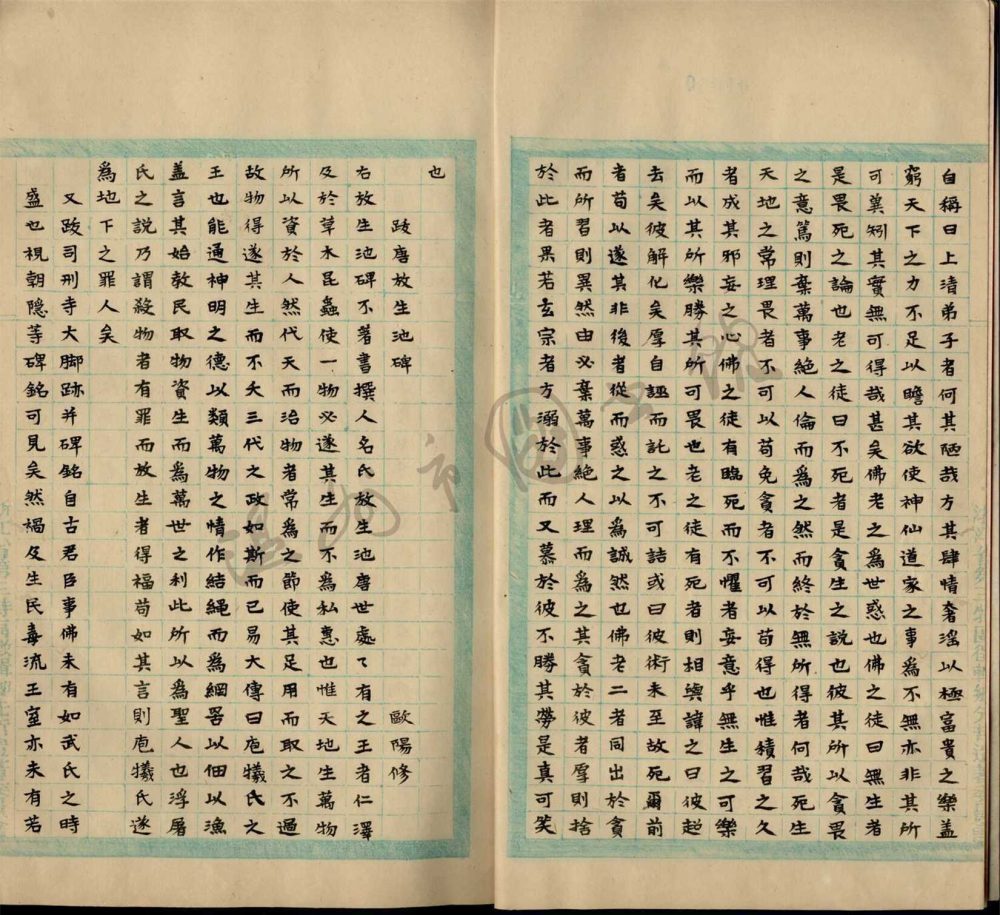 自稱曰上清弟子者何其陋哉方其肆情奢淫以極富貴之樂盖
窮天下之力不足以贍其欲使神仙道家之事為不無亦非其所
可兾矧其實無可得哉甚矣佛老之為世惑也佛之徒曰無生者
是畏死之論也老之徒曰不死者是貪生之說也彼其所以貪畏
之意篤則棄萬事絕人倫而為之然而終於無所得者何哉死生
天地之常理畏者不可以苟免貪者不可以苟得也惟積習之久
者成其邪妄之心佛之徒有臨死而不懼者妄意乎無生之可樂
而以其所樂勝其所可畏也老之徒有死者則相與諱之曰彼超
去矣彼解化矣厚自誣而託之不可詰或曰彼術未至故死爾前
者苟以遂其非後者從而惑之以為誠然也佛老二者同出於貪
而所習則異然由必棄萬事絕人理而為之其貪於彼者厚則捨
於此者果若玄宗者方溺於此而又慕於彼不勝其勞是真可笑
也
跋唐放生池碑 歐陽修
右放生池碑不著書撰人名氏放生池唐世處々有之王者仁澤
及於草木昆蟲使一物必遂其生而不為私惠也惟天地生萬物
所以資於人然代天而治物者常為之節使其足用而取之不過
故物得遂其生而不夭三代之政如斯而已易大傳曰庖犧氏之
王也能通神明之德以類萬物之情作結繩而為網罟以佃以漁
盖言其始教民取物資生而為萬世之利此所以為聖人也浮屠
氏之說乃謂殺物者有罪而放生者得福苟如其言則庖犧氏遂
為地下之罪人矣
又跋司刑寺大脚跡并碑銘自古君臣事佛未有如武氏之時
盛也視朝隱等碑銘可見矣然禍及生民毒流王室亦未有若